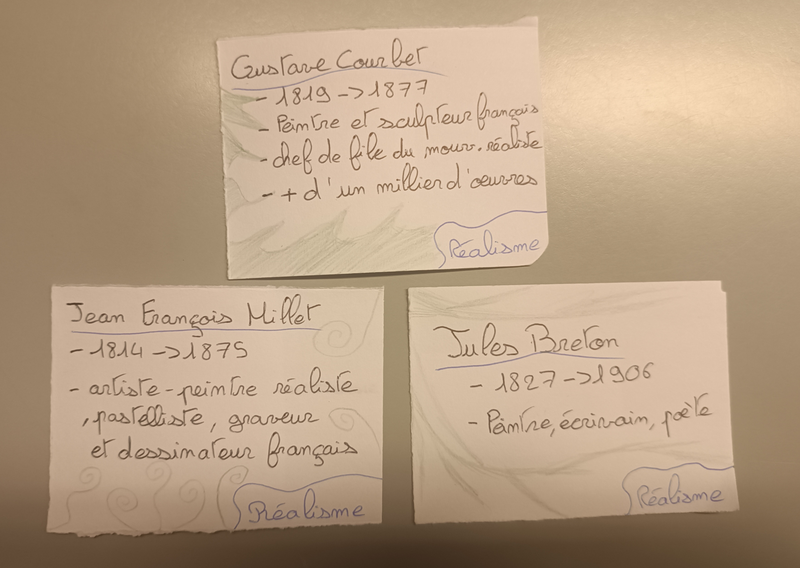 Gustave Courbet
- 1819 -> 1877
- Peintre et sculpteur français
- chef de file du mouv. réaliste
- + d'un millier d'œuvres
Réalisme
Jean François Millet
- 1814 -> 1875
- artiste-peintre réaliste
, pastelliste, graveur
et dessinateur français
Réalisme
Jules Breton
- 1827 -> 1906
- Peintre, écrivain, poète
Réalisme